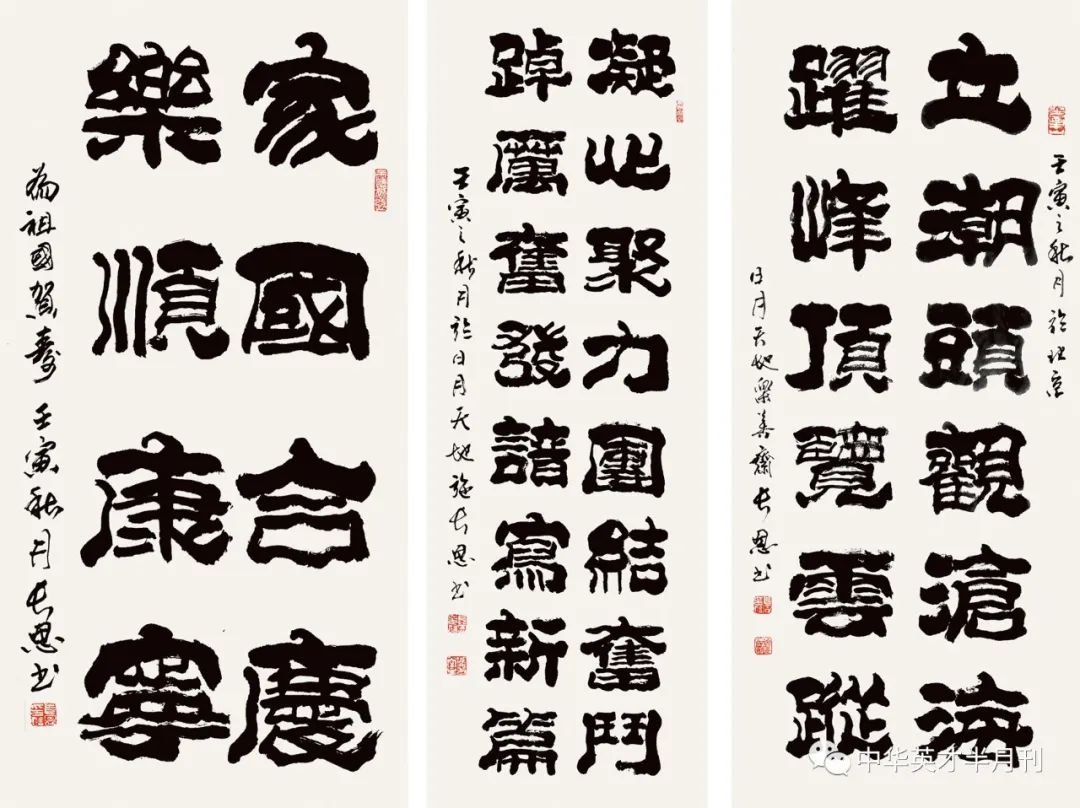 壬寅之秋月於北京
立潮頭觀滄海
躍峰頂覽雲蹤
日月天地樂善齋長恩書
凝心聚力團結奮鬥
踔厲奮發譜寫新篇
壬寅之秋月於日月天地長恩書
家國合慶
樂順康寧
為祖國賀壽 壬寅秋月長恩書
中华英才半月刊